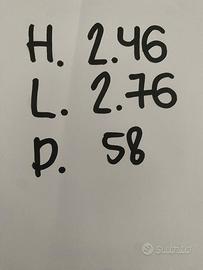 H. 2.46
L. 2.76
P. 58
subito